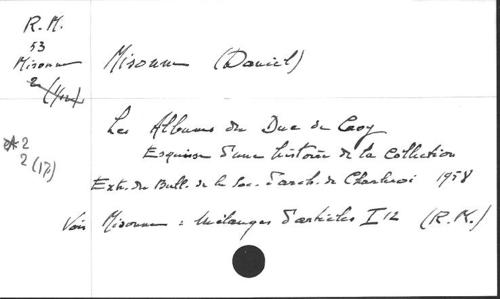 R.M.
53
Misonne
2
Misonne (Daniel)
2
2 (17)
Les Albums du Duc de Croy
Esquisse d'une histoire de la collection
Extr. du Bull. de la Soc. d'arch. de Charleroi 1958
Voir Misonne : Mélanges d'articles I 12 (R.M.)